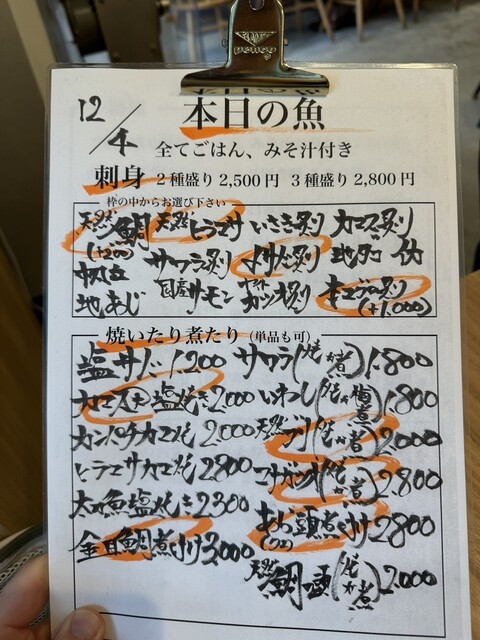 12/4
本日の魚
全てごはん、みそ汁付き
刺身 2種盛り2,500円 3種盛り2,800円
枠の中からお選び下さい
天然鯛 天然ヒラマサ いさき炙り カマス炙り
(+200) サワラ炙り メサバ炙り 地タコ
帆立 国産サーモン カツオ炙り キンメ炙り
地あじ (+1,000)
焼いたり煮たり(単品も可)
塩サバ 1,200 サワラ(焼か煮)1,800
カマス大塩焼き2,000 いわし(焼か梅煮)1,800
カンパチカマ焼 2,000 天然ブリ(焼か煮)2,000
ヒラマサカマ焼 2800 マナガツオ(焼か煮)2,800
太刀魚塩焼き2300 あら頭煮付け2800
金目鯛煮付け3,000
天然鯛の頭(焼か煮)2,000